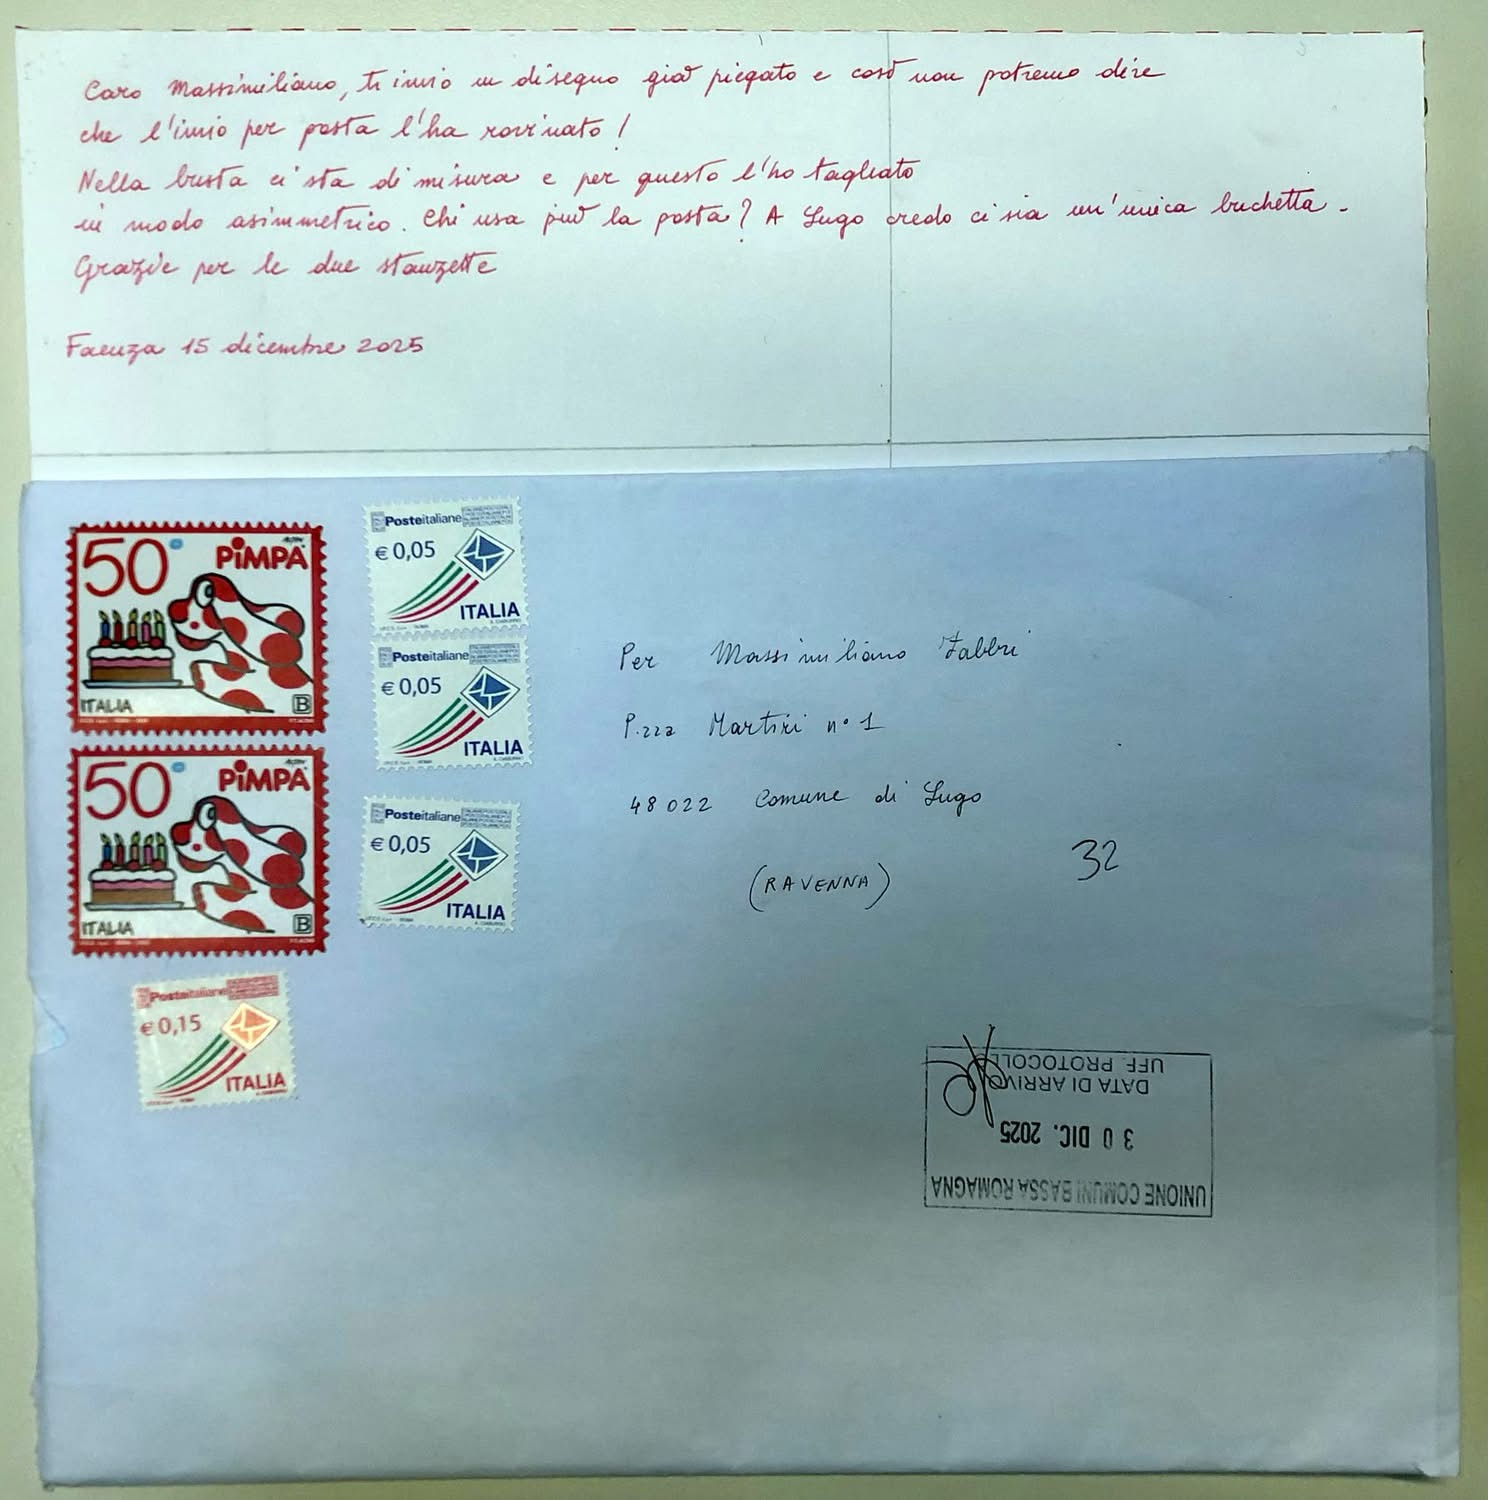 Caro Massimiliano, ti invio un disegno già piegato e così non potremo dire
che l'invio per posta l'ha rovinato!
Nella busta ci sta di misura e per questo l'ho tagliato
in modo asimmetrico. Chi usa più la posta? A Lugo credo ci sia un'unica buchetta.
Grazie per le due stanzette
Faenza 15 dicembre 2025
50°
PiMPA
ITALIA
B
50°
PiMPA
ITALIA
B
Posteitaliane
€ 0,05
ITALIA
Posteitaliane
€ 0,05
ITALIA
Posteitaliane
€ 0,05
ITALIA
Posteitaliane
€ 0,15
ITALIA
Per Massimiliano Fabbri
P.zza Martiri n° 1
48022 Comune di Lugo
(RAVENNA)
32
UNIONE COMUNI BASSA ROMAGNA
30 DIC. 2025
DATA DI ARRIVO
UFF. PROTOCOLLO